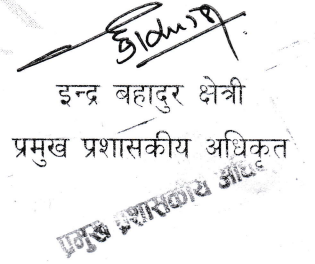 इन्द्र बहादुर क्षेत्री
प्रमुख प्रशासकीय अधिकृत
प्रमुख प्रशासकीय